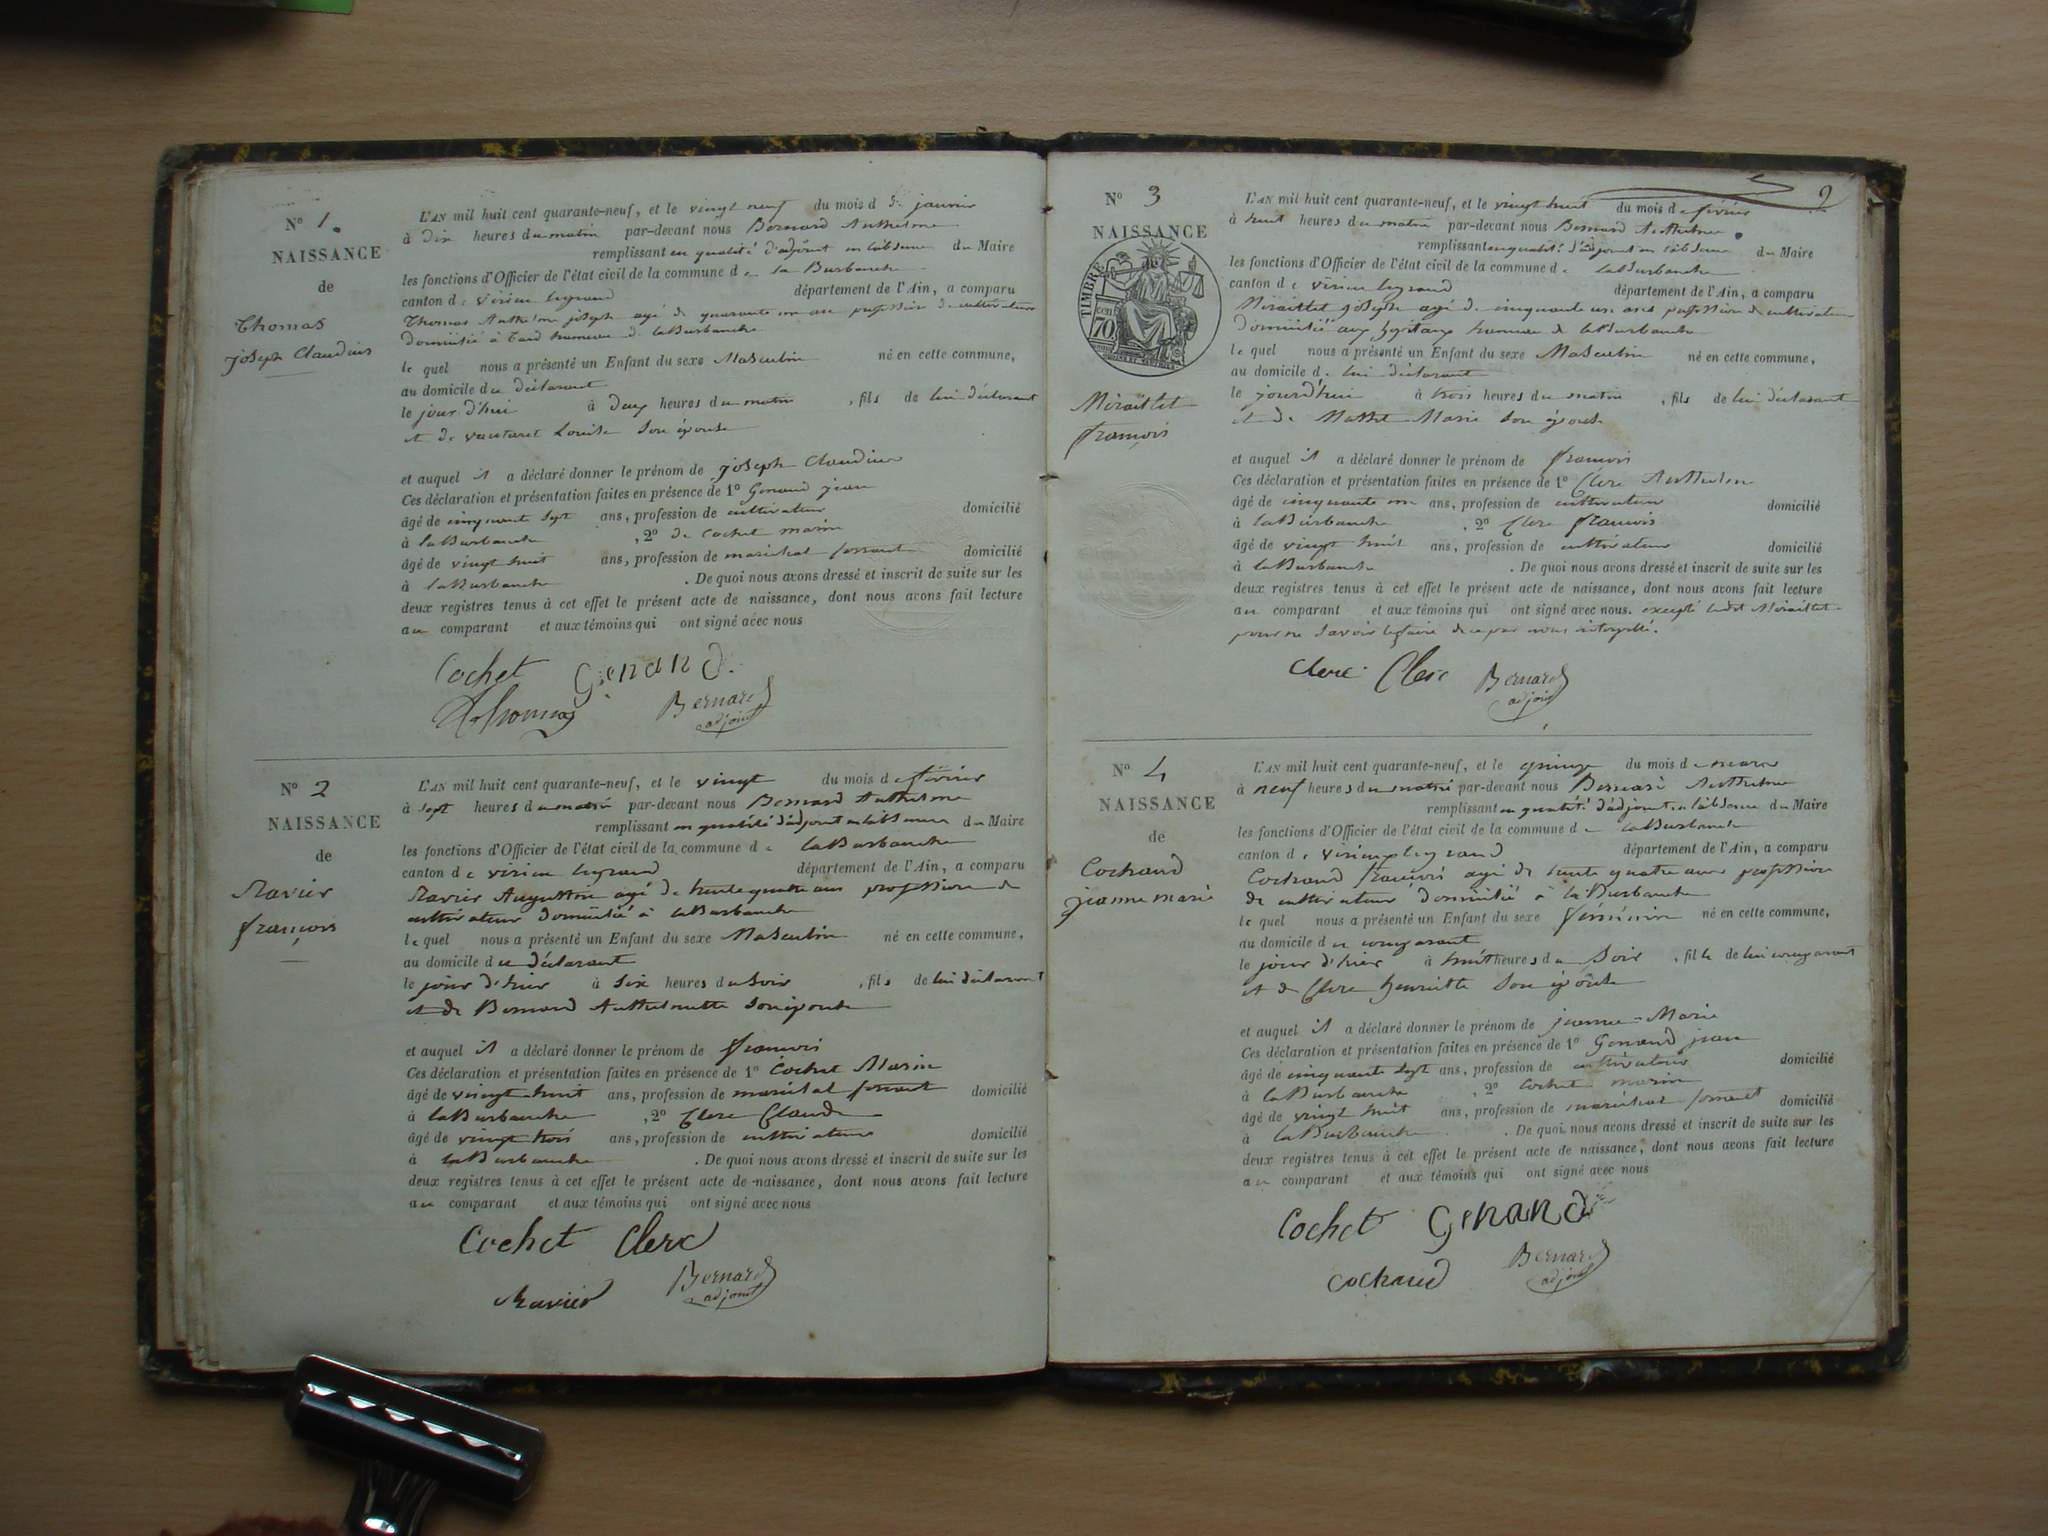 N° 1.
NAISSANCE
de
Thomas
joseph Claudius
L'AN mil huit cent quarante-neuf, et le vingt neuf du mois de janvier
à dix heures du matin par-devant nous Bernard Anthelme
remplissant en qualité d'adjoint en l'absence du Maire
les fonctions d'Officier de l'état civil de la commune de la Burbanche
canton de virieu legrand département de l'Ain, a comparu
Thomas Anthelme joseph agé de quarante un ans profession de cultivateur
domicilié à Tard hameau de laBurbanche
le quel nous a présenté un Enfant du sexe Masculin né en cette commune,
au domicile du déclarant
le jour d'hui à deux heures du matin , fils de lui déclarant
et de vautaret Louise son épouse
et auquel il a déclaré donner le prénom de joseph Claudius
Ces déclaration et présentation faites en présence de 1° Genand jean
âgé de cinquante sept ans, profession de cultivateur domicilié
à laBurbanche , 2° de Cochet marin
âgé de vingt huit ans, profession de maréchal ferrant domicilié
à laBurbanche . De quoi nous avons dressé et inscrit de suite sur les
deux registres tenus à cet effet le présent acte de naissance, dont nous avons fait lecture
au comparant et aux témoins qui ont signé avec nous
Cochet Genand.
Thomas Bernard
adjoint
N° 2
NAISSANCE
de
Ravier
françois
L'AN mil huit cent quarante-neuf, et le vingt du mois de février
à sept heures du matin par-devant nous Bernard Anthelme
remplissant en qualité d'adjoint en l'absence du Maire
les fonctions d'Officier de l'état civil de la commune de laBurbanche
canton de virieu legrand département de l'Ain, a comparu
Ravier Augustin agé de trente quatre ans profession de
cultivateur domicilié à laBurbanche
le quel nous a présenté un Enfant du sexe Masculin né en cette commune,
au domicile du déclarant
le jour d'hier à six heures du soir , fils de lui déclarant
et de Bernard Anthelmette son épouse
et auquel il a déclaré donner le prénom de françois
Ces déclaration et présentation faites en présence de 1° Cochet Marin
âgé de vingt huit ans, profession de maréchal ferrant domicilié
à laBurbanche , 2° Clerc Claude
âgé de vingt trois ans, profession de cultivateur domicilié
à laBurbanche . De quoi nous avons dressé et inscrit de suite sur les
deux registres tenus à cet effet le présent acte de naissance, dont nous avons fait lecture
au comparant et aux témoins qui ont signé avec nous
Cochet Clerc
Ravier Bernard
adjoint
2
N° 3
NAISSANCE
TIMBRE
70
Miraillet
françois
L'AN mil huit cent quarante-neuf, et le vingt huit du mois de février
à huit heures du matin par-devant nous Bernard Anthelme
remplissant en qualité d'adjoint en l'absence du Maire
les fonctions d'Officier de l'état civil de la commune de laBurbanche
canton de virieu legrand département de l'Ain, a comparu
Miraillet joseph agé de cinquante un ans profession de cultivateur
domicilié aux hameau de laBurbanche
le quel nous a présenté un Enfant du sexe Masculin né en cette commune,
au domicile de lui déclarant
le jourd'hui à trois heures du matin , fils de lui déclarant
et de Marie son épouse
et auquel il a déclaré donner le prénom de françois
Ces déclaration et présentation faites en présence de 1° Clerc Anthelme
âgé de cinquante un ans, profession de cultivateur domicilié
à laBurbanche , 2° Clerc françois
âgé de vingt huit ans, profession de cultivateur domicilié
à laBurbanche . De quoi nous avons dressé et inscrit de suite sur les
deux registres tenus à cet effet le présent acte de naissance, dont nous avons fait lecture
au comparant et aux témoins qui ont signé avec nous. excepté ledit Miraillet
pour ne savoir le faire de ce par nous interpellé.
Clerc Clerc Bernard
adjoint
N° 4
NAISSANCE
de
Cochand
jeanne marie
L'AN mil huit cent quarante-neuf, et le quinze du mois de mars
à neuf heures du matin par-devant nous Bernard Anthelme
remplissant en qualité d'adjoint en l'absence du Maire
les fonctions d'Officier de l'état civil de la commune de laBurbanche
canton de virieu legrand département de l'Ain, a comparu
Cochand françois agé de trente quatre ans profession
de cultivateur domicilié à laBurbanche
le quel nous a présenté un Enfant du sexe féminin né en cette commune,
au domicile du comparant
le jour d'hier à huit heures du soir , fille de lui comparant
et de Clerc henriette son épouse
et auquel il a déclaré donner le prénom de jeanne-Marie
Ces déclaration et présentation faites en présence de 1° Genand jean
âgé de cinquante sept ans, profession de cultivateur domicilié
à laBurbanche , 2° Cochet marin
âgé de vingt huit ans, profession de maréchal ferrant domicilié
à laBurbanche . De quoi nous avons dressé et inscrit de suite sur les
deux registres tenus à cet effet le présent acte de naissance, dont nous avons fait lecture
au comparant et aux témoins qui ont signé avec nous
Cochet Genand
cochand Bernard
adjoint